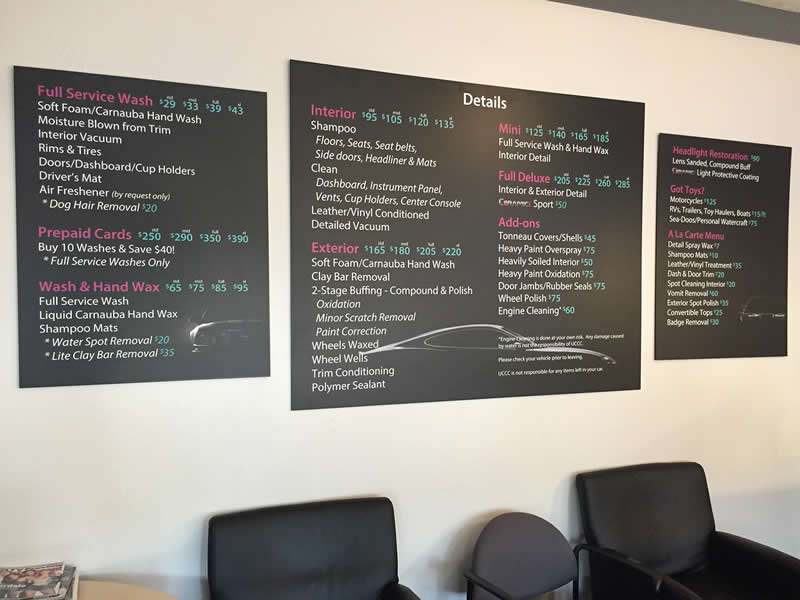 Full Service Wash std $29 med $33 full $39 xl $43
Soft Foam/Carnauba Hand Wash
Moisture Blown from Trim
Interior Vacuum
Rims & Tires
Doors/Dashboard/Cup Holders
Driver's Mat
Air Freshener (by request only)
* Dog Hair Removal $20
Prepaid Cards std $250 med $290 full $350 xl $390
Buy 10 Washes & Save $40!
* Full Service Washes Only
Wash & Hand Wax std $65 med $75 full $85 xl $95
Full Service Wash
Liquid Carnauba Hand Wax
Shampoo Mats
* Water Spot Removal $20
* Lite Clay Bar Removal $35
Details
Interior std $95 med $105 full $120 xl $135
Shampoo
Floors, Seats, Seat belts,
Side doors, Headliner & Mats
Clean
Dashboard, Instrument Panel,
Vents, Cup Holders, Center Console
Leather/Vinyl Conditioned
Detailed Vacuum
Exterior std $165 med $180 full $205 xl $220
Soft Foam/Carnauba Hand Wash
Clay Bar Removal
2-Stage Buffing - Compound & Polish
Oxidation
Minor Scratch Removal
Paint Correction
Wheels Waxed
Wheel Wells
Trim Conditioning
Polymer Sealant
Mini std $125 med $140 full $165 xl $185
Full Service Wash & Hand Wax
Interior Detail
Full Deluxe std $205 med $225 full $260 xl $285
Interior & Exterior Detail
Sport $50
Add-ons
Tonneau Covers/Shells $45
Heavy Paint Overspray $75
Heavily Soiled Interior $50
Heavy Paint Oxidation $75
Door Jambs/Rubber Seals $75
Wheel Polish $75
Engine Cleaning* $60
*Engine Cleaning is done at your own risk. Any damage caused
by water is not the responsibility of UCCC.
Please check your vehicle prior to leaving.
UCCC is not responsible for any items left in your car.
Headlight Restoration $90
Lens Sanded, Compound Buff
Light Protective Coating
Got Toys?
Motorcycles $125
RVs, Trailers, Toy Haulers, Boats $15/ft
Sea-Doos/Personal Watercraft $75
A La Carte Menu
Detail Spray Wax $7
Shampoo Mats $10
Leather/Vinyl Treatment $35
Dash & Door Trim $20
Spot Cleaning Interior $20
Vomit Removal $60
Exterior Spot Polish $35
Convertible Tops $25
Badge Removal $30